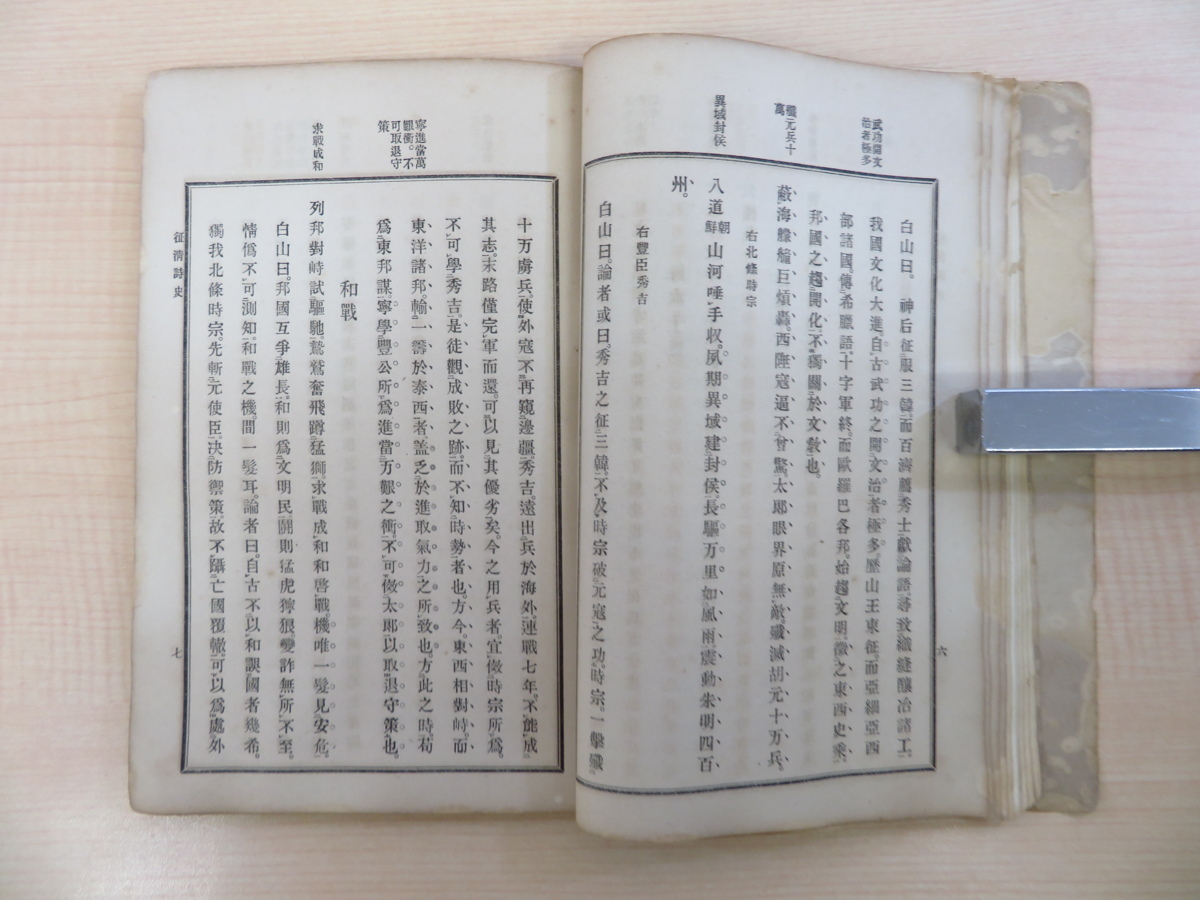 武功開文
治者極多
殲元兵十
萬
異域封侯
白山曰。神后征服三韓。而百濟薦秀士。獻論語。尋致織縫釀冶諸工。
我國文化大進。自古武功之開文治者極多。歷山王東征。而亞細亞西
部諸國。傳希臘語。十字軍終。而歐羅巴各邦。始趨文明。徵之東西史乘、
邦國之趨開化。不獨關於文敎也。
蔽海艨艟巨熕轟。西陲寇逼不曾驚。太郎眼界原無敵。殲滅胡元十万兵。
右北條時宗
八道朝鮮山河唾手収。夙期異域建封侯。長驅万里如風雨。震動朱明四百
州。
右豐臣秀吉
白山曰。論者或曰。秀吉之征三韓。不及時宗破元寇之功。時宗一擊殲
六
寧進當萬
艱衝。不
可取退守
策
求戰成和
十万虜兵。使外寇不再窺邊疆。秀吉遠出兵於海外。連戰七年。不能成
其志。末路僅完軍而還。可以見其優劣矣。今之用兵者。宜倣時宗所爲。
不可學秀吉。是徒觀成敗之跡。而不知時勢者也。方今東西相對峙。而
東洋諸邦。輸一籌於泰西者。盖乏於進取氣力之所致也。方此之時。苟
爲東邦謀。寧學豐公所爲。進當万艱之衝。不可倣太郎以取退守策也。
和戰
列邦對峙試驅馳。鷙鷲奮飛蹲猛獅。求戰成和和啓戰。機唯一髮見安危。
白山曰。邦國互爭雄長。和則爲文明民。鬪則猛虎獰狼。變詐無所不至。
情僞不可測知。和戰之機。間一髮耳。論者曰。自古不以和誤國者幾希。
獨我北條時宗。先斬元使臣。決防禦策。故不蹈亡國覆轍。可以爲處外
征淸詩史
七